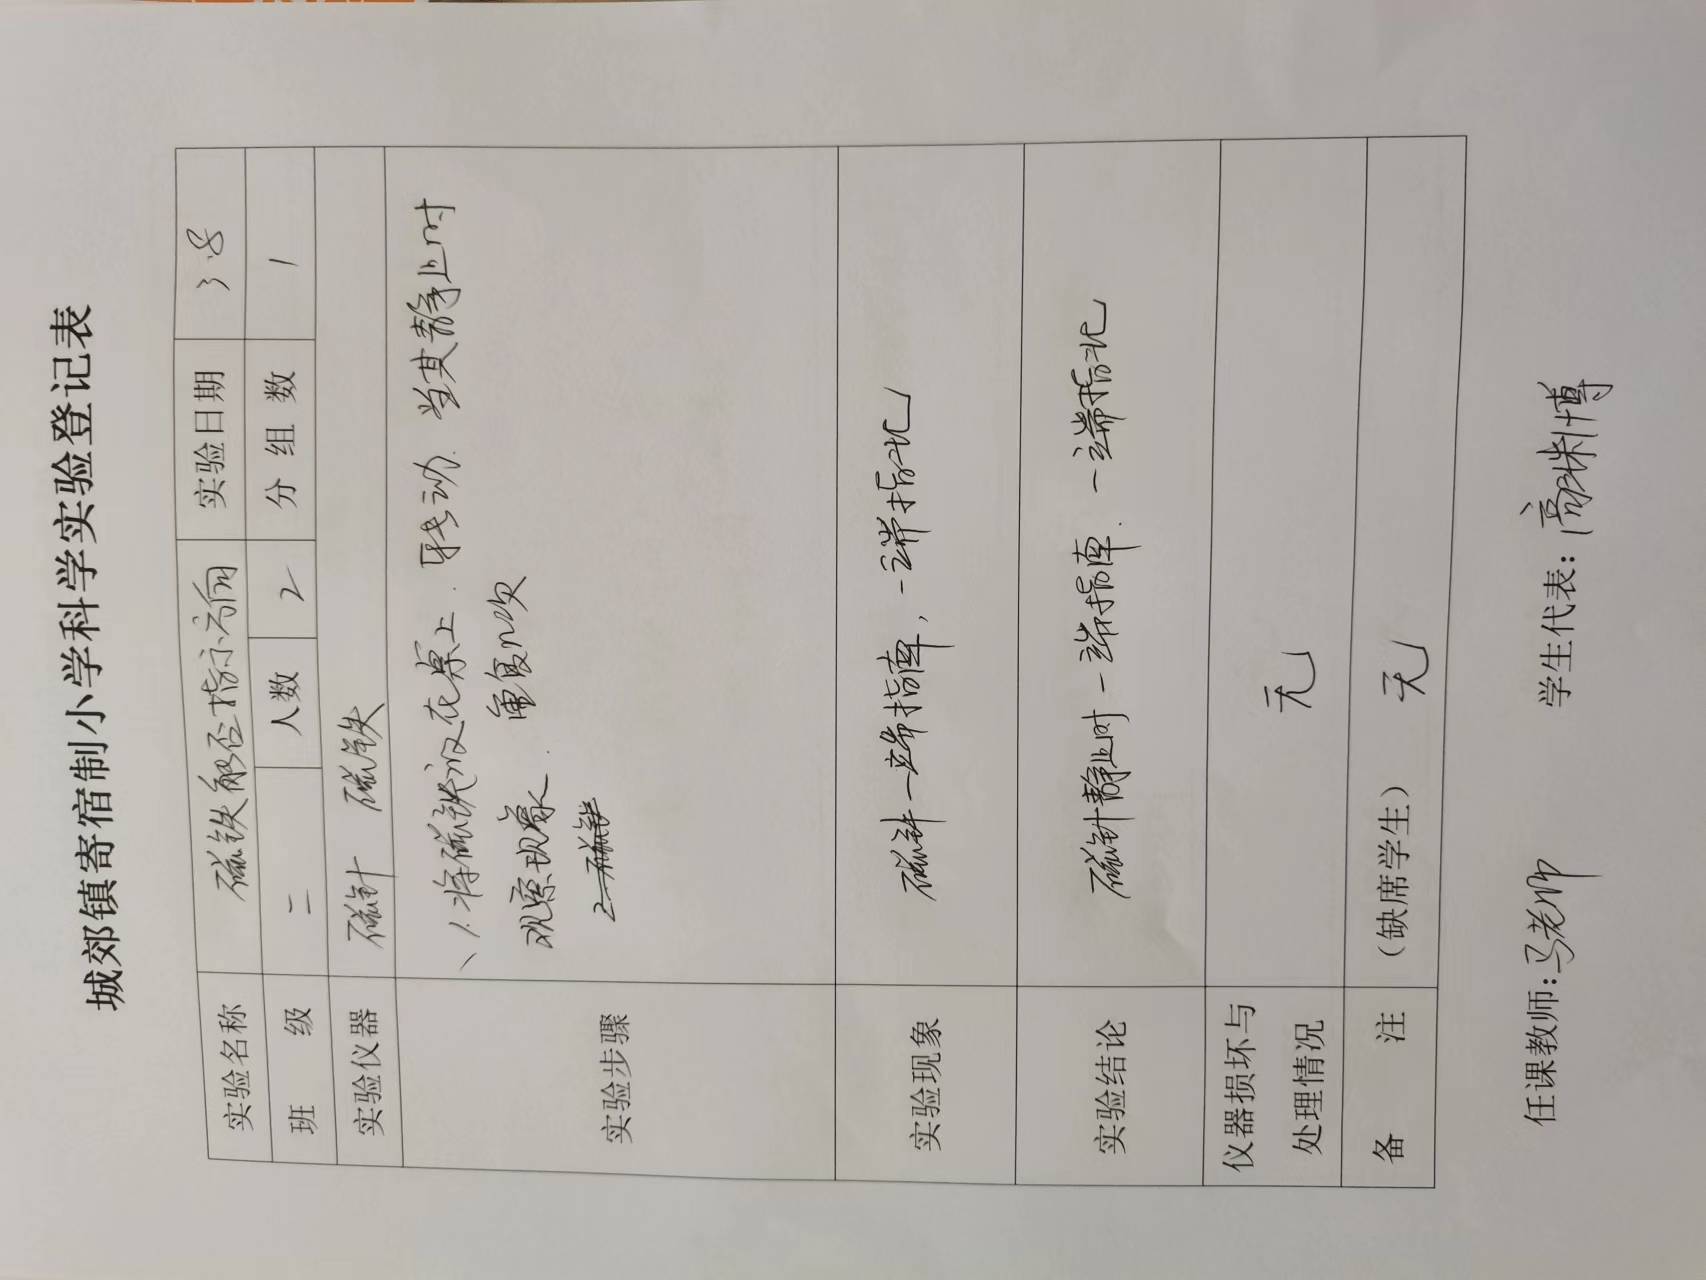 城郊镇寄宿制小学科学实验登记表
实验名称 磁铁能否指示方向 实验日期 3.8
班 级 二 人数 2 分 组 数 1
实验仪器 磁针 磁铁
实验步骤 1.将磁铁放在桌上.转动.当其静止时
观察现象.重复几次
2.磁针
实验现象 磁针一端指南,一端指北
实验结论 磁针静止时一端指南.一端指北
仪器损坏与
处理情况 无
备 注 (缺席学生) 无
任课教师:马老师 学生代表:高 博